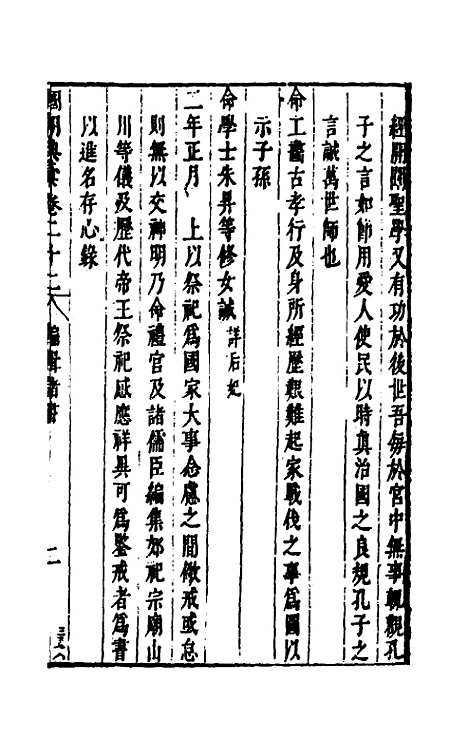 經開闡聖學又有功於後世吾每於宮中無事輒觀孔
子之言如節用愛人使民以時真治國之良規孔子之
言誠萬世師也
命工畫古孝行及身所經歷艱難起家戰伐之事為圖以
示子孫
命學士朱昇等修女誡 詳后妃
二年正月 上以祭祀為國家大事念慮之間儆戒或怠
則無以交神明乃命禮官及諸儒臣編集郊祀宗廟山
川等儀及歷代帝王祭祀感應祥異可為鑒戒者為書
以進名存心錄
國朝典彙卷二十二 編輯諸書 二